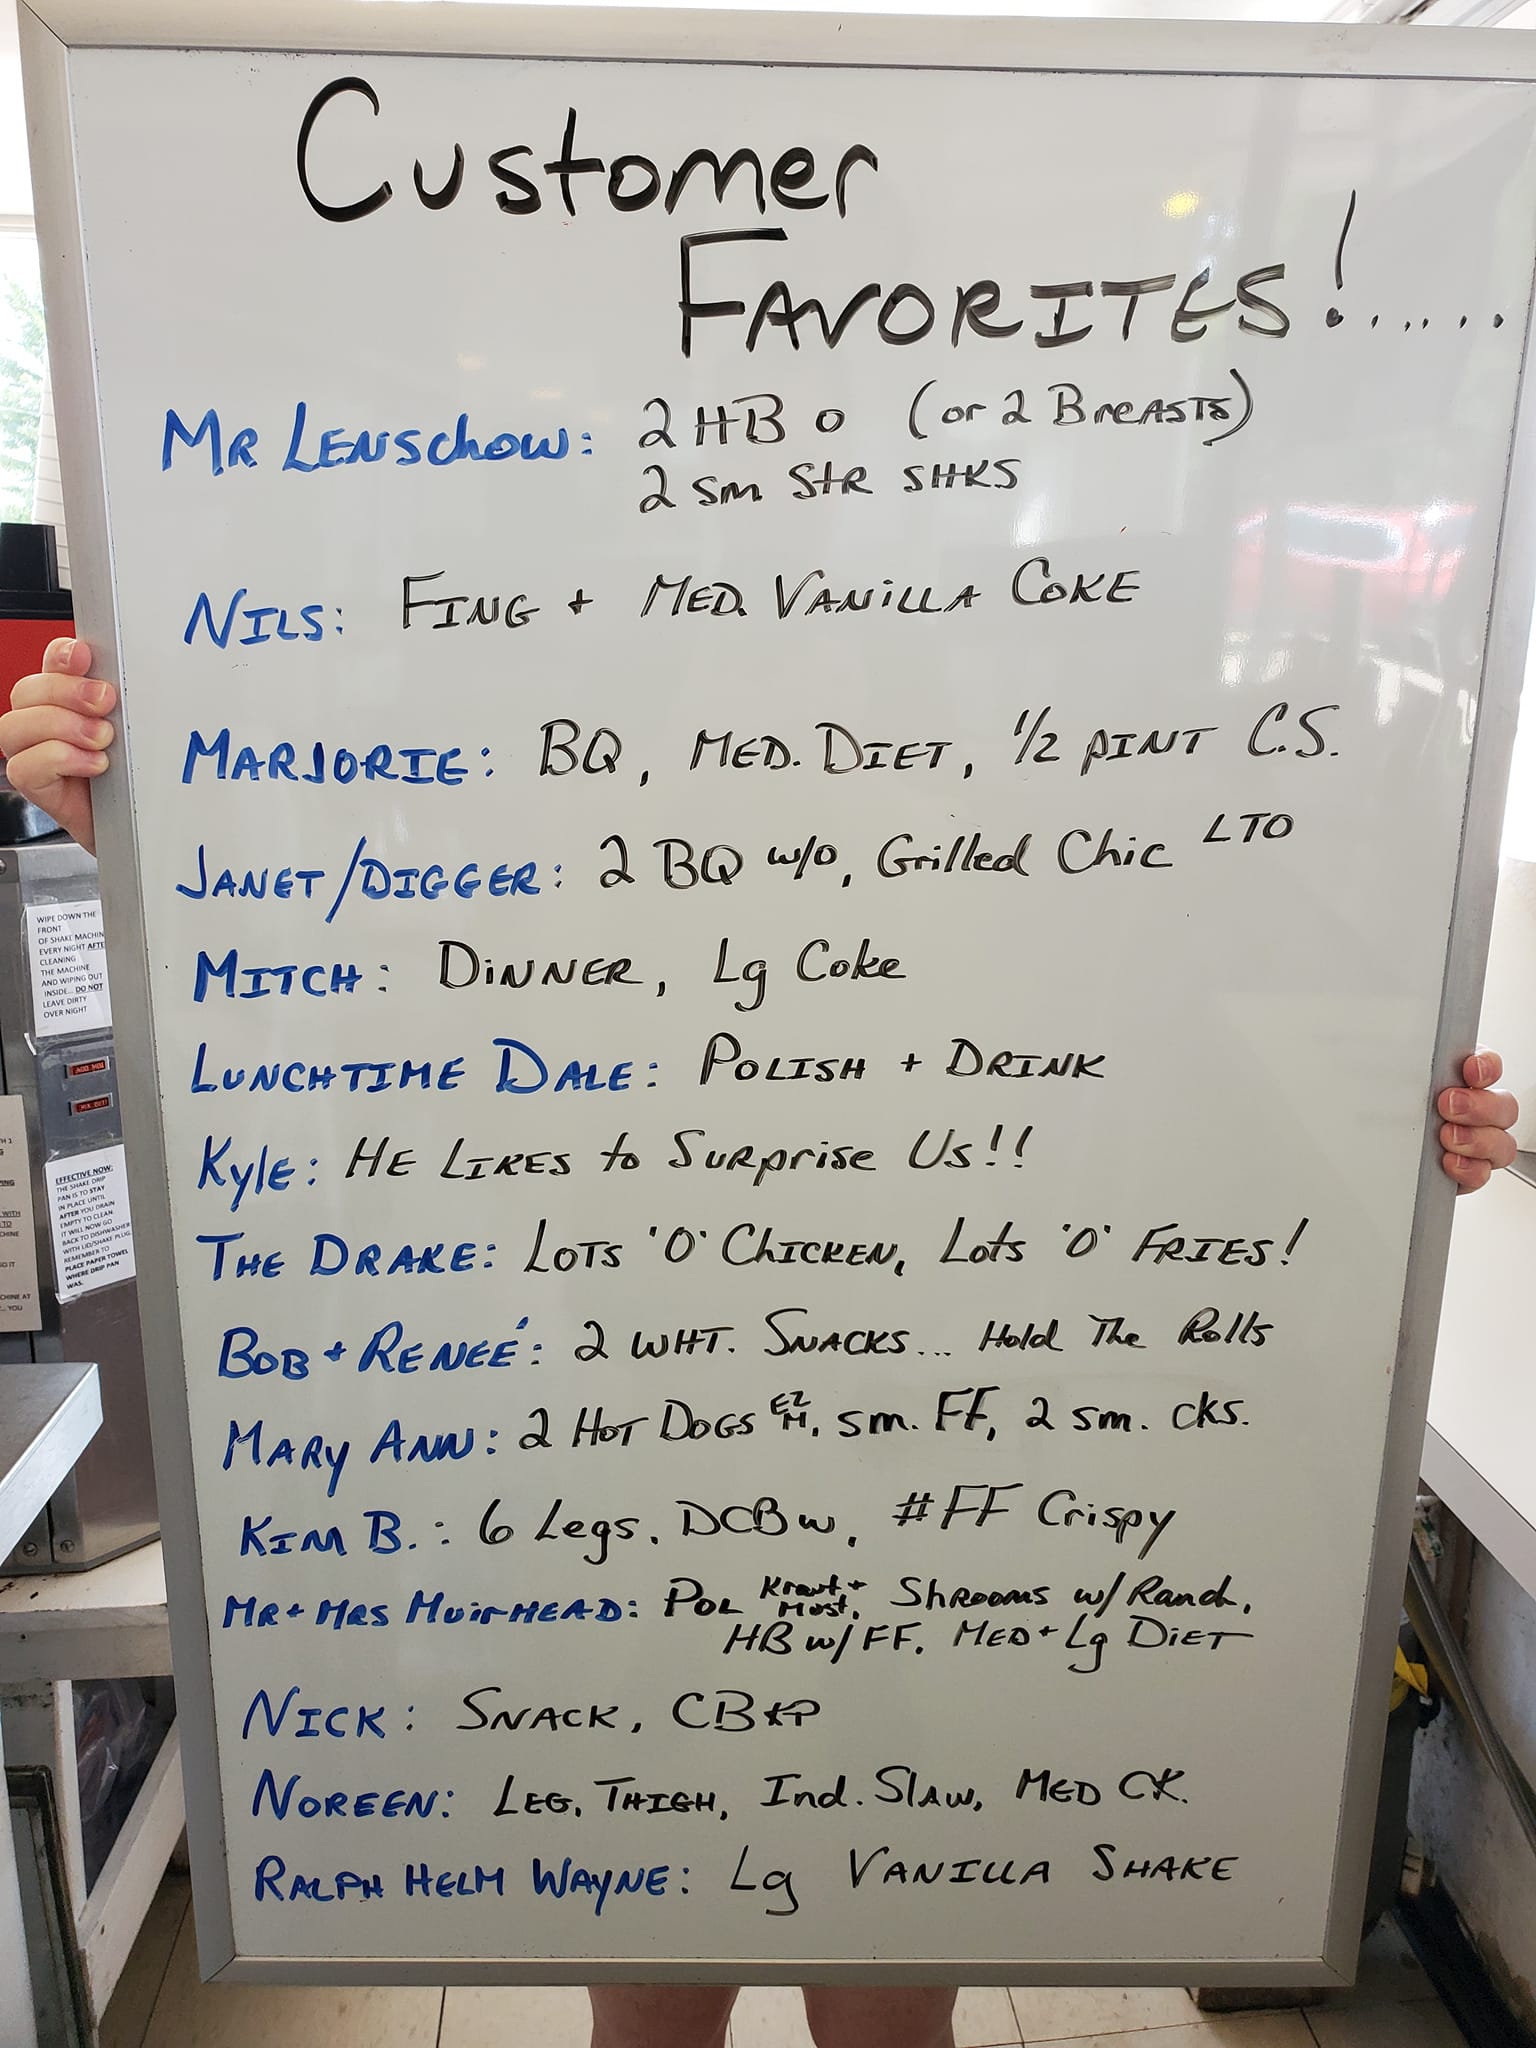 Customer
FAVORITES!.....
MR LENSCHOW: 2 HB o (or 2 BREASTS)
2 sm StR SHKS
NILS: FING + MED. VANILLA COKE
MARJORIE: BQ, MED. DIET, 1/2 PINT C.S.
JANET/DIGGER: 2 BQ w/o, Grilled Chic LTO
MITCH: DINNER, Lg Coke
LUNCHTIME DALE: POLISH + DRINK
Kyle: HE LIKES to SURPRISE Us!!
THE DRAKE: LOTS 'O' CHICKEN, Lots 'O' FRIES!
BOB + RENEÉ: 2 WHT. SNACKS... Hold The Rolls
MARY ANN: 2 HOT DOGS EZ M, sm. FF, 2 sm. CKS.
KIM B.: 6 Legs, DCBW, #FF Crispy
MR + MRS MUIRHEAD: POL Kraut + Must, Shrooms w/ Ranch,
HB w/ FF, MED + Lg DIET
NICK: SNACK, CB KP
NOREEN: LEG, THIGH, Ind. SLAW, MED CK.
RALPH HELM WAYNE: Lg VANILLA SHAKE
WIPE DOWN THE
FRONT
OF SHAKE MACHIN
EVERY NIGHT AFTE
CLEANING
THE MACHINE
AND WIPING OUT
INSIDE... DO NOT
LEAVE DIRTY
OVER NIGHT
EFFECTIVE NOW:
THE SHAKE DRIP
PAN IS TO STAY
IN PLACE UNTIL
AFTER YOU DRAIN
EMPTY TO CLEAN.
IT WILL NOW GO
BACK TO DISHWASHER
WITH LID/SHAKE PLUG.
REMEMBER TO
PLACE PAPER TOWEL
WHERE DRIP PAN
WAS.